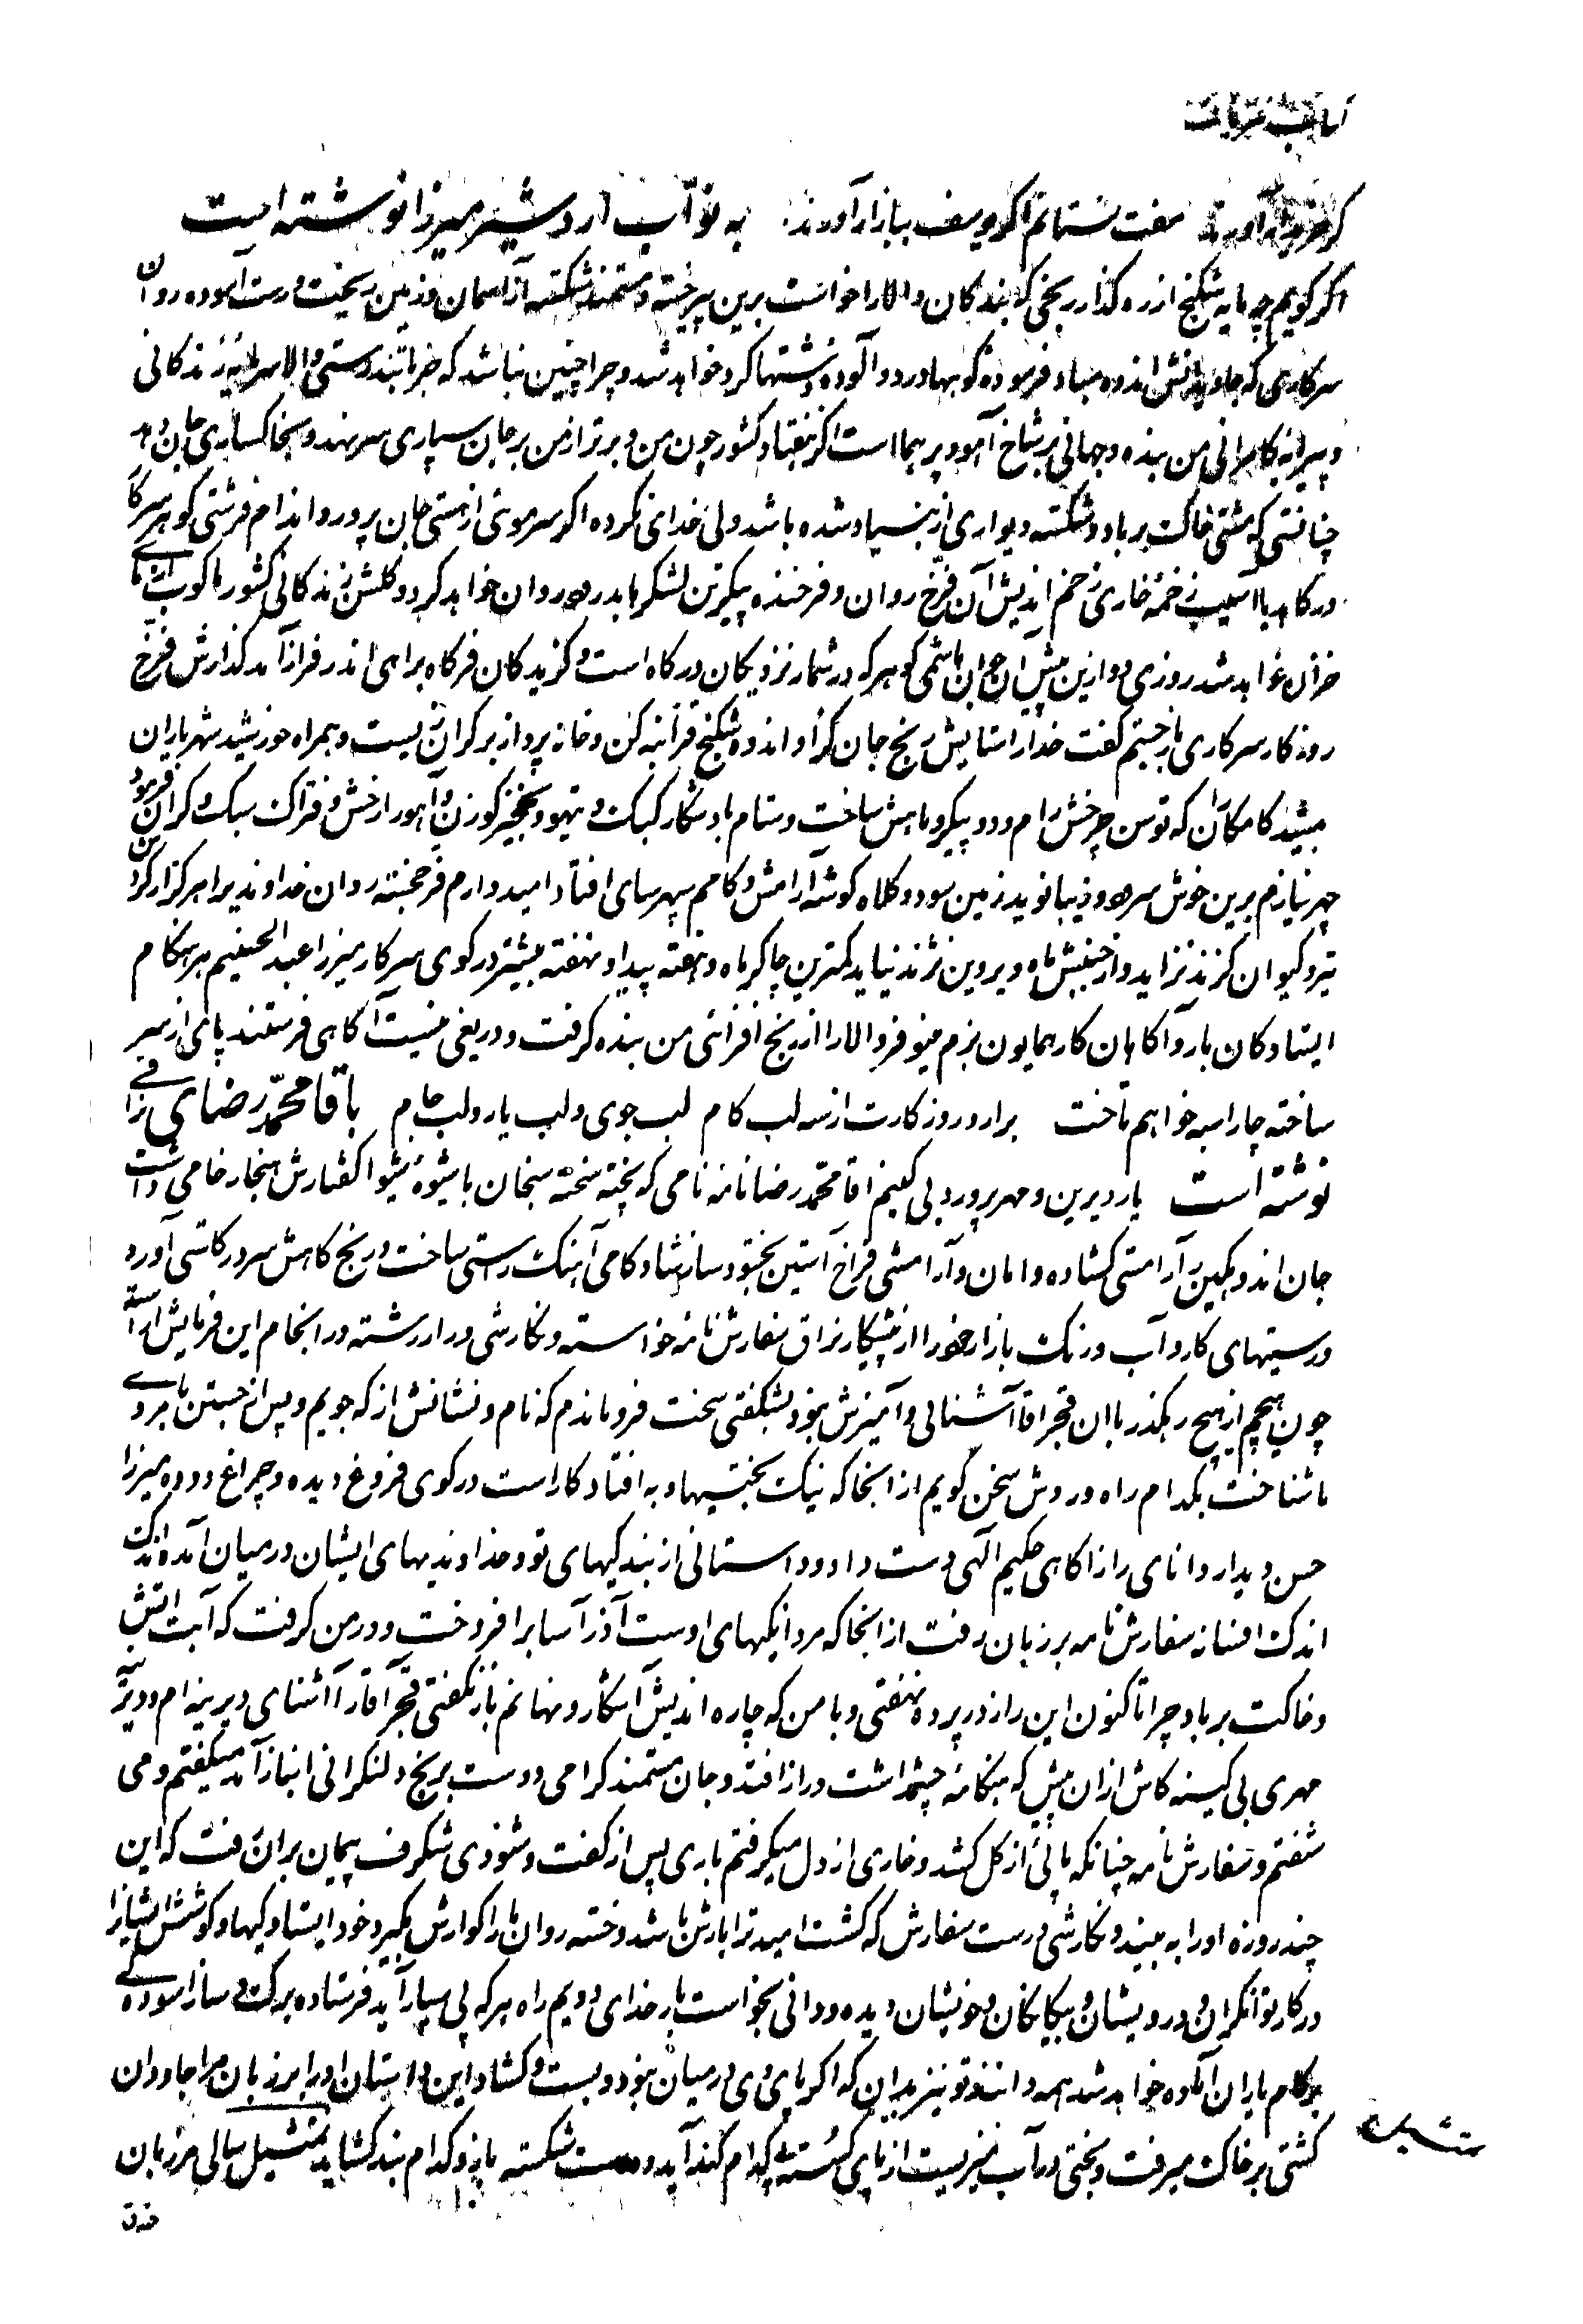 مفت نستانم اگر یوسف ببازار آورند به نوّاب اردشیر میرزا نوشته است
اگر گویم چه مایه شکنج از ره گذار رنجی که بندگان والا را خواست برین پیر خسته و مستمند شکسته از آسمان و زمین ریخت درست آسوده روان
سرکاری که جاویدانش اندوه مباد فرسوده کوبها و درد آلوده دشتها کرد خواهد شد و چرا چنین نباشد که جز با تندرستی والا سرمایه زندگانی
و پیرایه کامرانی من بنده و جهانی بر شاخ آهو و پر هما است اگر هفتاد کشور چون من و برتر از من بر جان سپاری سر نهند و بخاکساری جان دهد
چنانستی که مشتی خاک بر باد و شکسته دیواری از بنیاد شده باشد ولی خدای نکرده اگر سر موئی از هستی جان پرور و اندام فرشتی گوهر سرکار
در کاهد یا آسیب زخمه خاری زخم اندیش آن فرخ روان و فرخنده پیکر تن لشکرها بدرود روان خواهد کرد و گلشن زندگانی کشورها کوب
خزان خواهد شد روزی دو ازین پیش این جوان هاشمی گوهر که در شمار نزدیکان درگاه است و گزیدگان فرگاه براهی اندر فراز آمد گذارش فرخ
روزگار سرکاری باز جستم گفت خدا را ستایش رنج جان گزا و اندوه شکنج فزا بنه کن و خانه پرداز بر کران زیست و همراه خورشید شهریاران
جمشید کامکاران که توسن چرخش رام و دو پیکر و ماهش ساخت و ستام باد شکار کبک و تیهو و نخجیر گوزن و آهو را رخش و فتراک سبک و گران فرمود
چهر نیازم برین خوش سرود و زیبا نوید زمین سود و کلاه گوشه آرامش و کامم سپهر سای افتاد امیدوارم فر خجسته روان خداوندیرا هرگز از گردش
تیر و کیوان گزند نزاید و از جنبش ماه و پروین نژند نیاید کمترین چاکر ماه و هفته پیدا و نهفته بیشتر در کوی سرکار میرزا عبد الحسینم هر هنگام
ایستادگان بار و آگاهان کار همایون بزم مینو فر والا را از رنج افزائی من بنده گرفت و دریغی نیست آگاهی فرستند پای از سر
ساخته چار اسبه خواهم تاخت برآرد روزگارت از سه لب کام لب جوی و لب یار و لب جام باقا محمّد رضای نراقی
نوشته است یار دیرین و مهر پرورد بی کینم اقا محمّد رضا نامه نامی که پخته سخته سنجان با شیوه شیوا گفتارش هنجار خامی داشت
جان اندوهگین را رامشی گشاده دامان و آرامشی فراخ آستین بخشود ساز شادکامی آهنگ رستی ساخت و رنج کاهش سر در کاستی آورد
درستیهای کار و آب و رنگ بازار خود را از پیشکار نراق سفارش نامه خواسته و نگارشی در از رشته در انجام این فرمایش آراسته
چون هیچم از هیچ رهگذر با ان قجر اقا آشنائی و آمیزش نبود بشگفتی سخت فرو ماندم که نام و نشانش از که جویم و پس از جستن با مردی
ناشناخت بکدام راه و روش سخن گویم از انجا که نیک بختیها و به افتاد کار است در کوی فروغ دیده و چراغ دوده میرزا
حسن دیدار دانای راز آگاهی حکیم الهی دست داد و داستانی از بندگیهای تو و خداوندیهای ایشان در میان آمد اندک
اندک افسانه سفارش نامه بر زبان رفت از انجا که مردانگیهای اوست آذر آسا بر افروخت و در من گرفت که آبت آتش
و خاکت بر باد چرا تا کنون این راز در پرده نهفتی و با من که چاره اندیش آشکار و نهانم باز نگفتی قجر آقا را آشنای دیرینه ام و در
مهری بی کینه کاش از ان پیش که هنگامه چشمداشت دراز افتد و جان مستمند گرامی دوست برنج دلنگرانی انباز آمد میگفتم و می
شنفتم و سفارش نامه چنانکه پائی از گل کشد و خاری از دل میگرفتم باری پس از گفت و شنودی شگرف پیمان بر ان رفت که این
چند روزه او را به بیند و نگارشی درست سفارش که کشت امید ترا بارش باشد و خسته روان ما را گوارش بگیرد خود ایستادگیها و کوشش ایشانرا
در کار توانگران و درویشان و بیگانگان و خویشان دیده و دانی بخواست بار خدای دویم راه هر که پی سپار آید فرستاده برگ و ساز آسودگی
بر کام یاران آماده خواهد شد همه دانند تو نیز بدان که اگر پای وی در میان نبود و بست و گشاد این داستان او را بر زبان مرا جاودان
کشتی بر خاک میرفت و بختی در آب نمیزیست از پای گسسته پی کدام گند آید و دست شکسته بازو کدام بند گشاید تنسیل سالی مرزبان